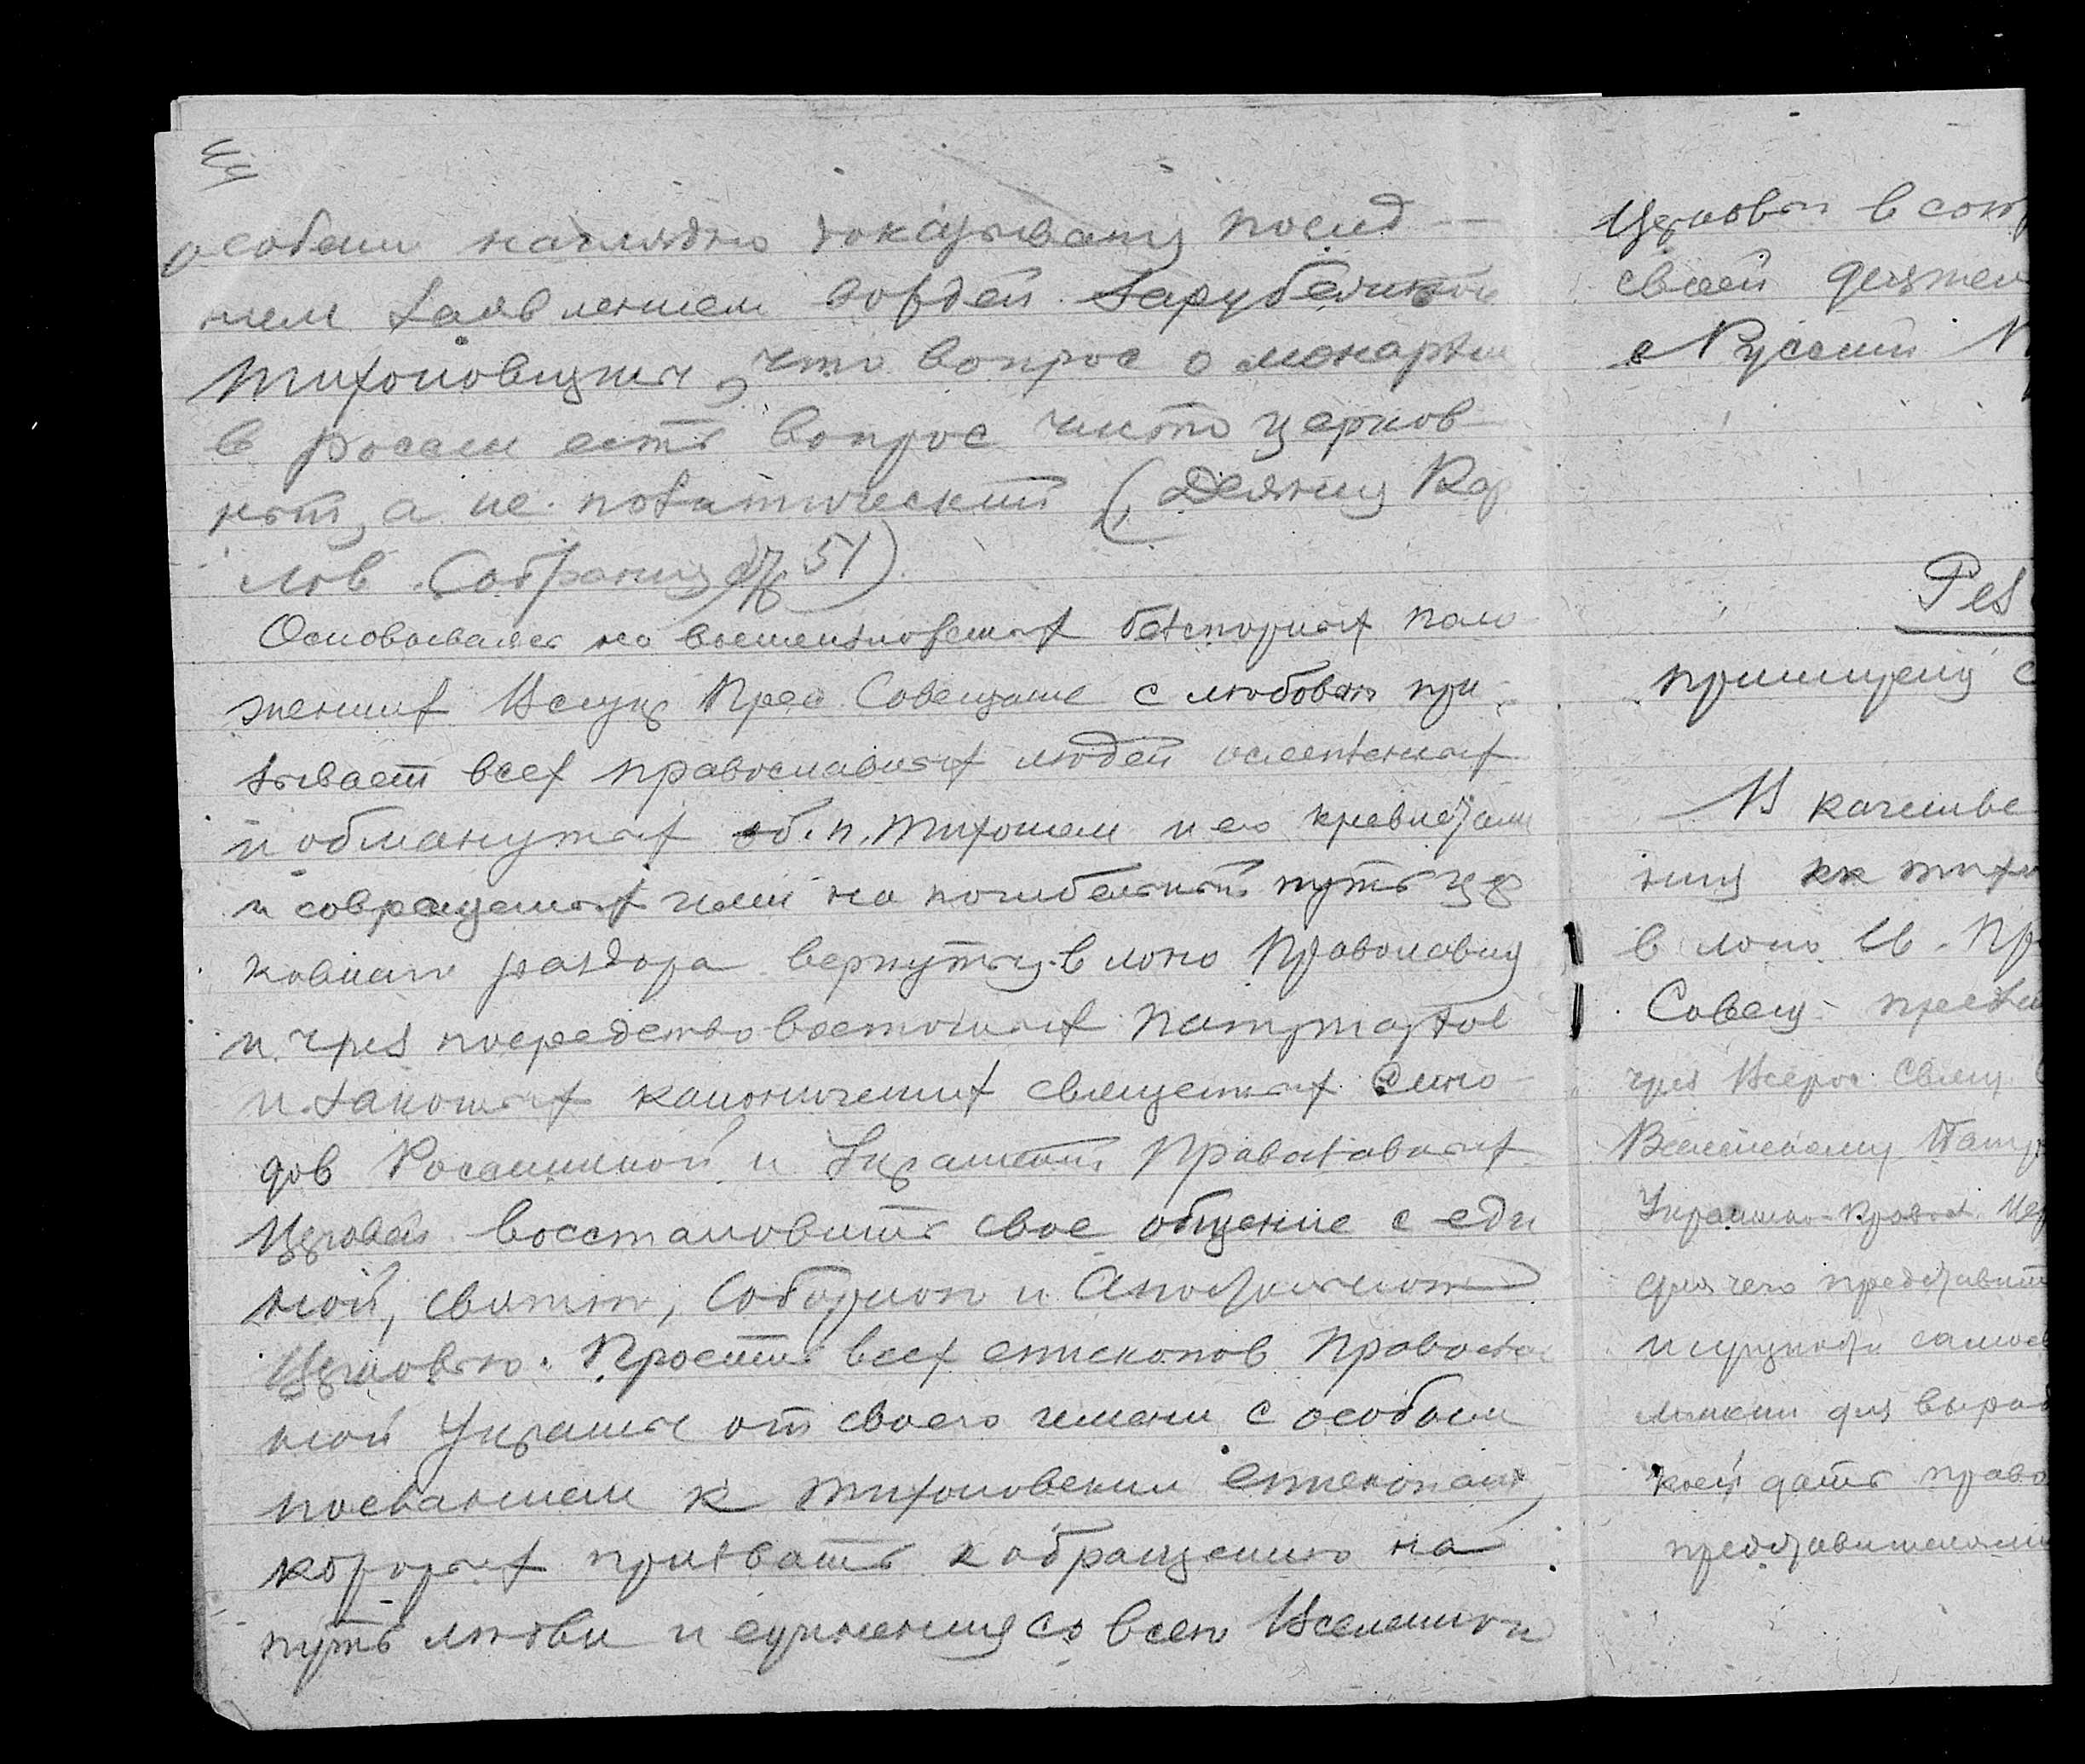 особенно наглядно доказывается послед-
ним заявлением вождей зарубежной
тихоновщины, что вопрос о монархии
в России есть вопрос чисто церков-
ный, а не политический (Деяния Кар
лов. Собрания стр 51).
Основываясь на вышеизложенных безспорных поло
жениях Всеукр Пред. Совещание с любовью при
зывает всех православных людей ослепленных
и обманутых б. п. Тихоном и его
и совращенных ими на погибельный путь цер
ковнаго раздора вернуться в лоно Православия
и чрез посредство восточных патриархов
и законных канонических священных Сино-
дов Российской и Украинской Православных
Церквей восстановить свое общение с еди
ной, святой, Соборной и Апостольской
Церковью. Просить всех епископов Правослов
ной Украины от своего имени с особым
посланием к тихоновским епископам,
которых призвать к обращению на
путь любви и единения со всей Вселенской
Церковью в
своей деятел
с Русский
Рез
В качестве
в лоно Св. Пр
Совещ.
чрез Всерос. Свящ.
Вселенскому Патр
Украинско-Правос. Цер
для чего представит
для выраб
дать право
представителями